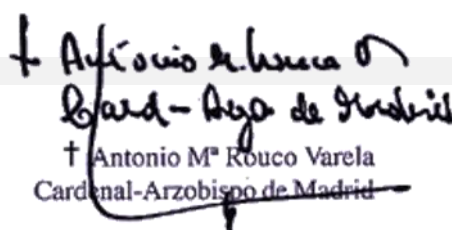 † Antonio M. Rouco V
Card-Arzo de Madrid
† Antonio Mª Rouco Varela
Cardenal-Arzobispo de Madrid